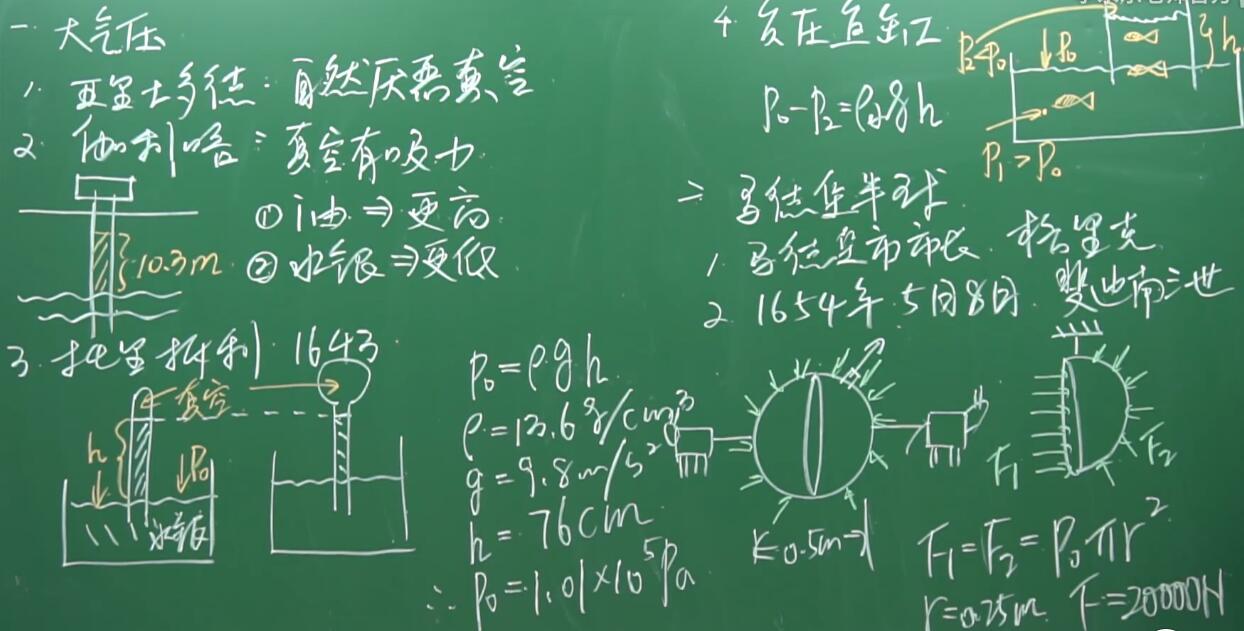 一 大气压
1. 亚里士多德: 自然厌恶真空
2. 伽利略: 真空有吸力
① 油 ⇒ 更高
② 水银 ⇒ 更低
10.3m
3. 托里拆利 1643
真空
h
P₀
水银
P₀=ρgh
ρ=13.6g/cm³
g=9.8m/s²
h=76cm
∴ P₀=1.01×10⁵Pa
4.
P₂<P₀
P₀
h
P₀-P₂=ρgh
P₁>P₀
二 马德堡半球
1. 马德堡市市长 格里克
2. 1654年5月8日 斐迪南三世
0.5m
F₁
F₂
F₁=F₂=P₀πr²
r=0.25m F=20000N